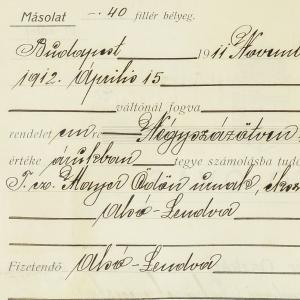 Másolat —.40 fillér bélyeg.
Budapest 1911 Novem
1912. Április 15
váltónál fogva
rendelet em re Négyszázötven
értéke árukban tegye számolásba tudó
T. cz. Mayer Ödön urnak, ékos
Alsó-Lendva
Fizetendő Alsó-Lendva